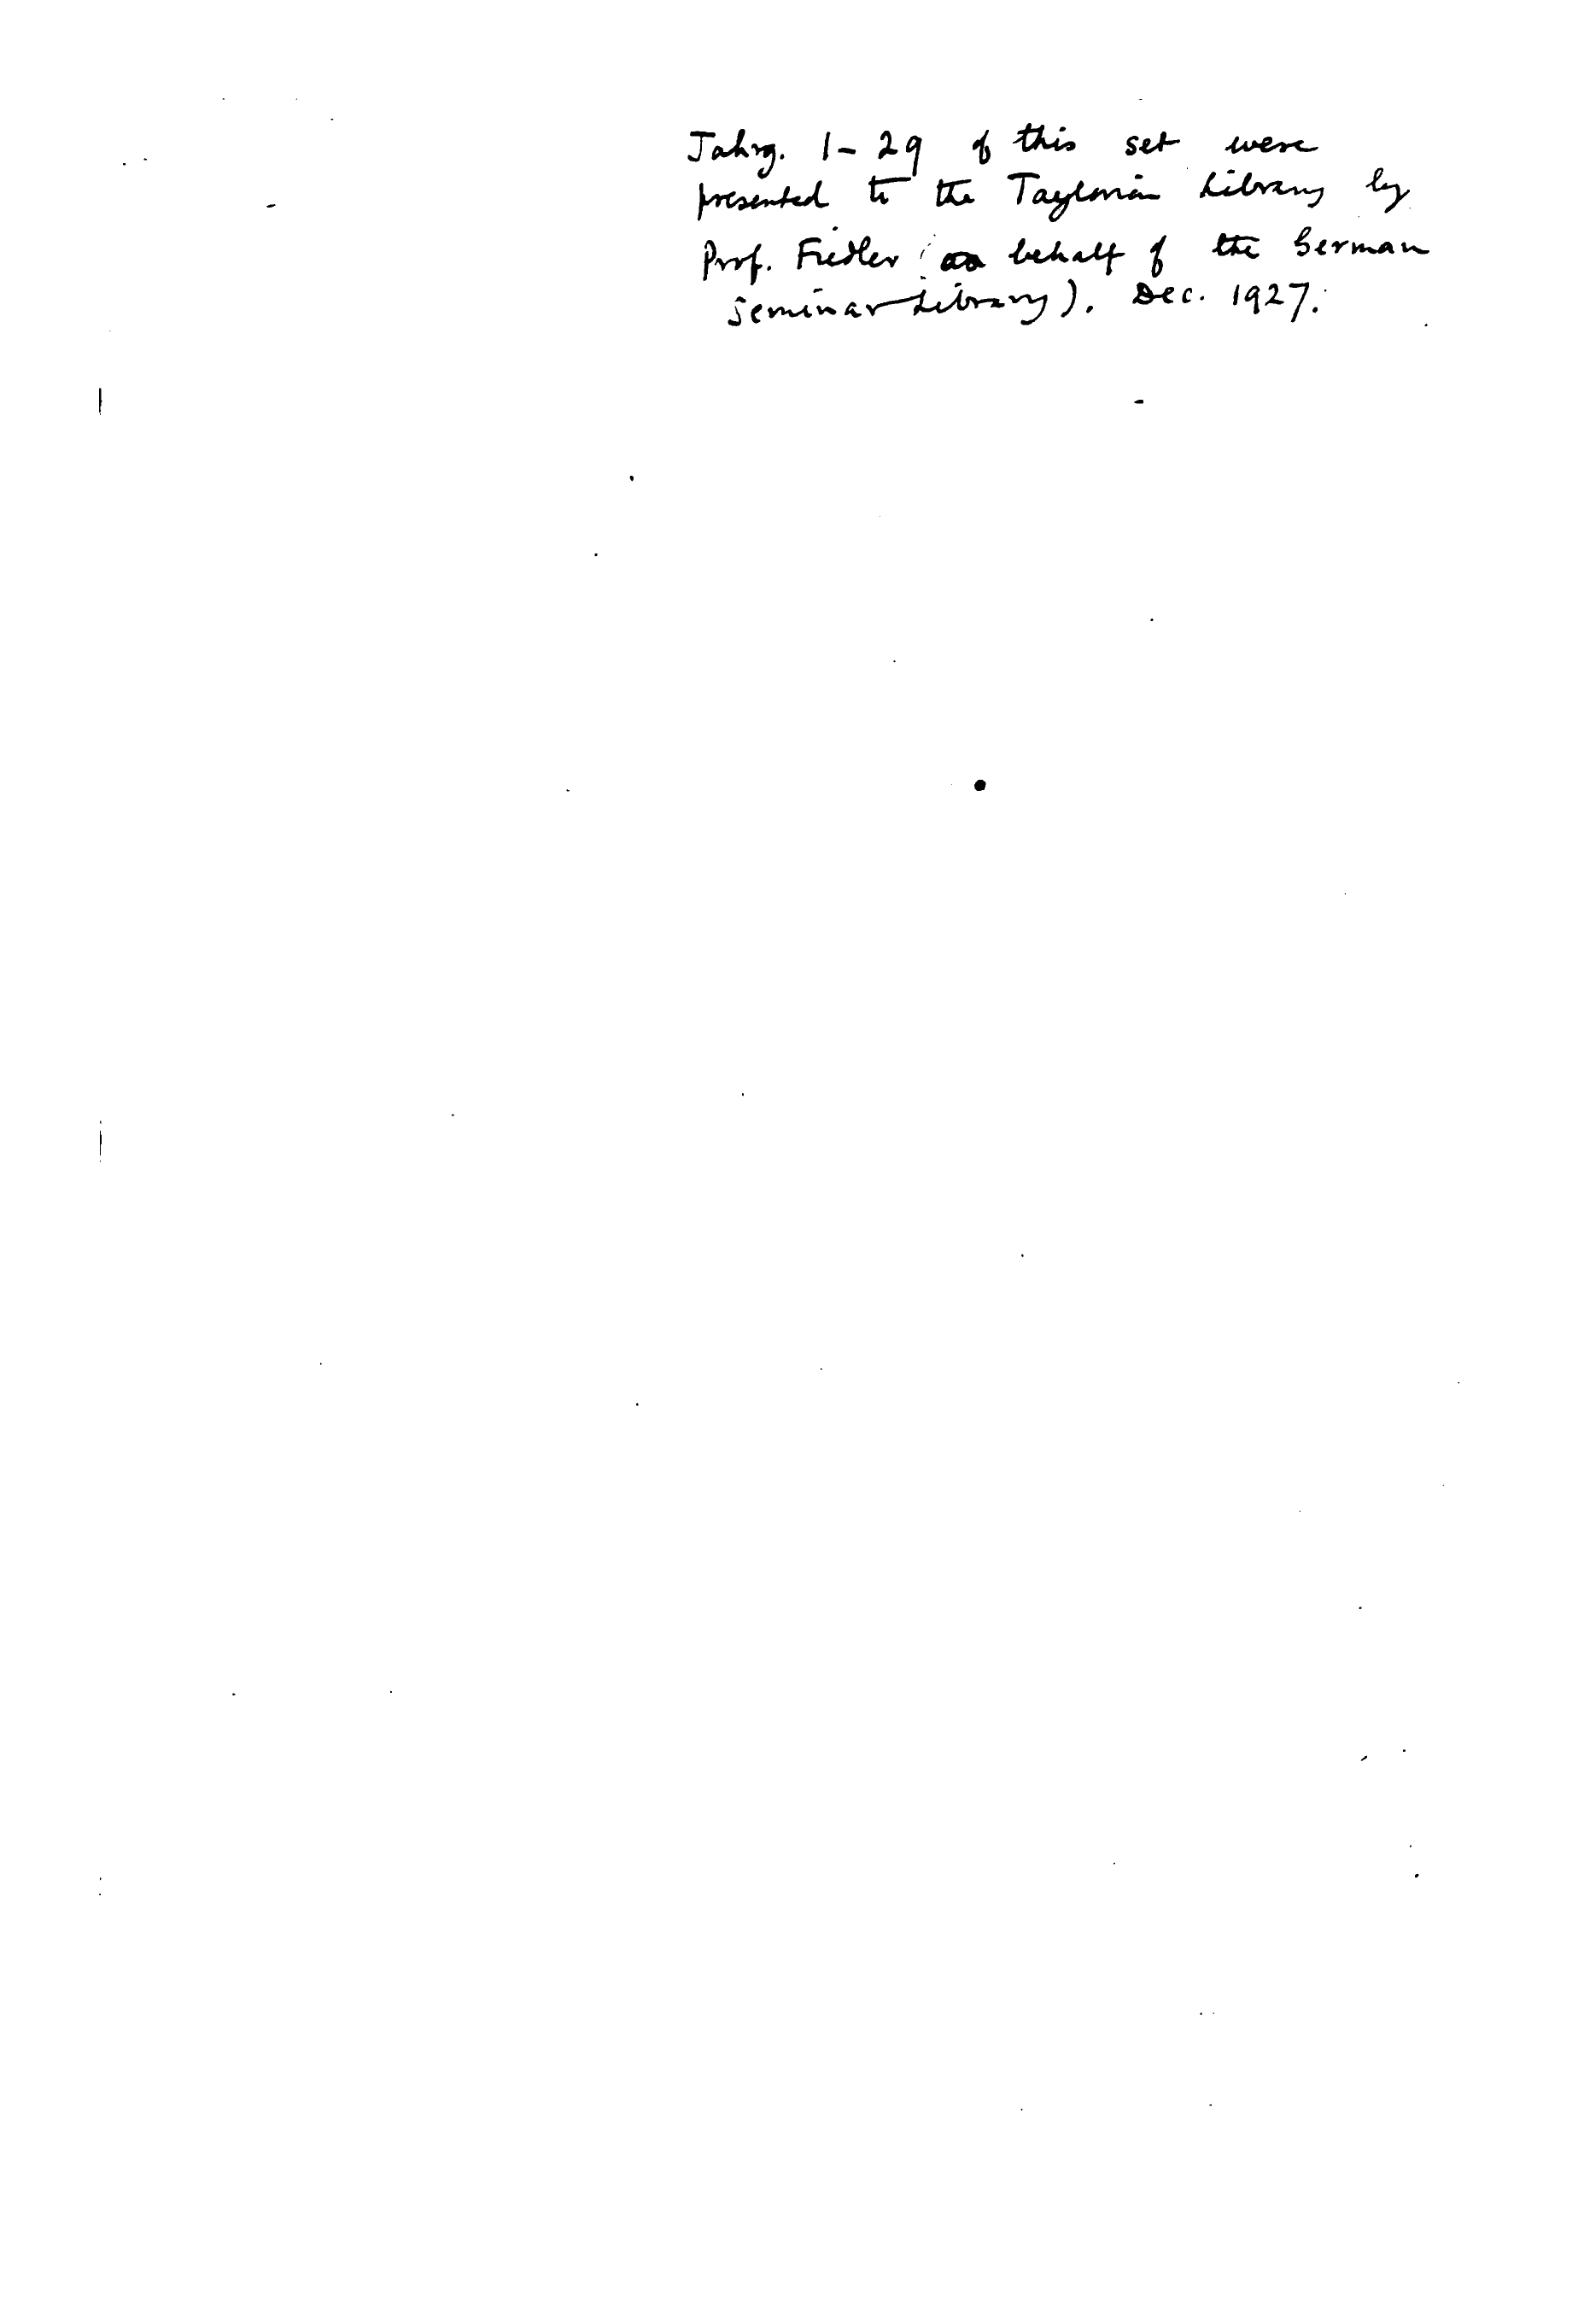 Jahrg. 1-29 of this set were
presented to the Taylorian Library by
Prof. Fiedler (on behalf of the German
Seminar Library). Dec. 1927.